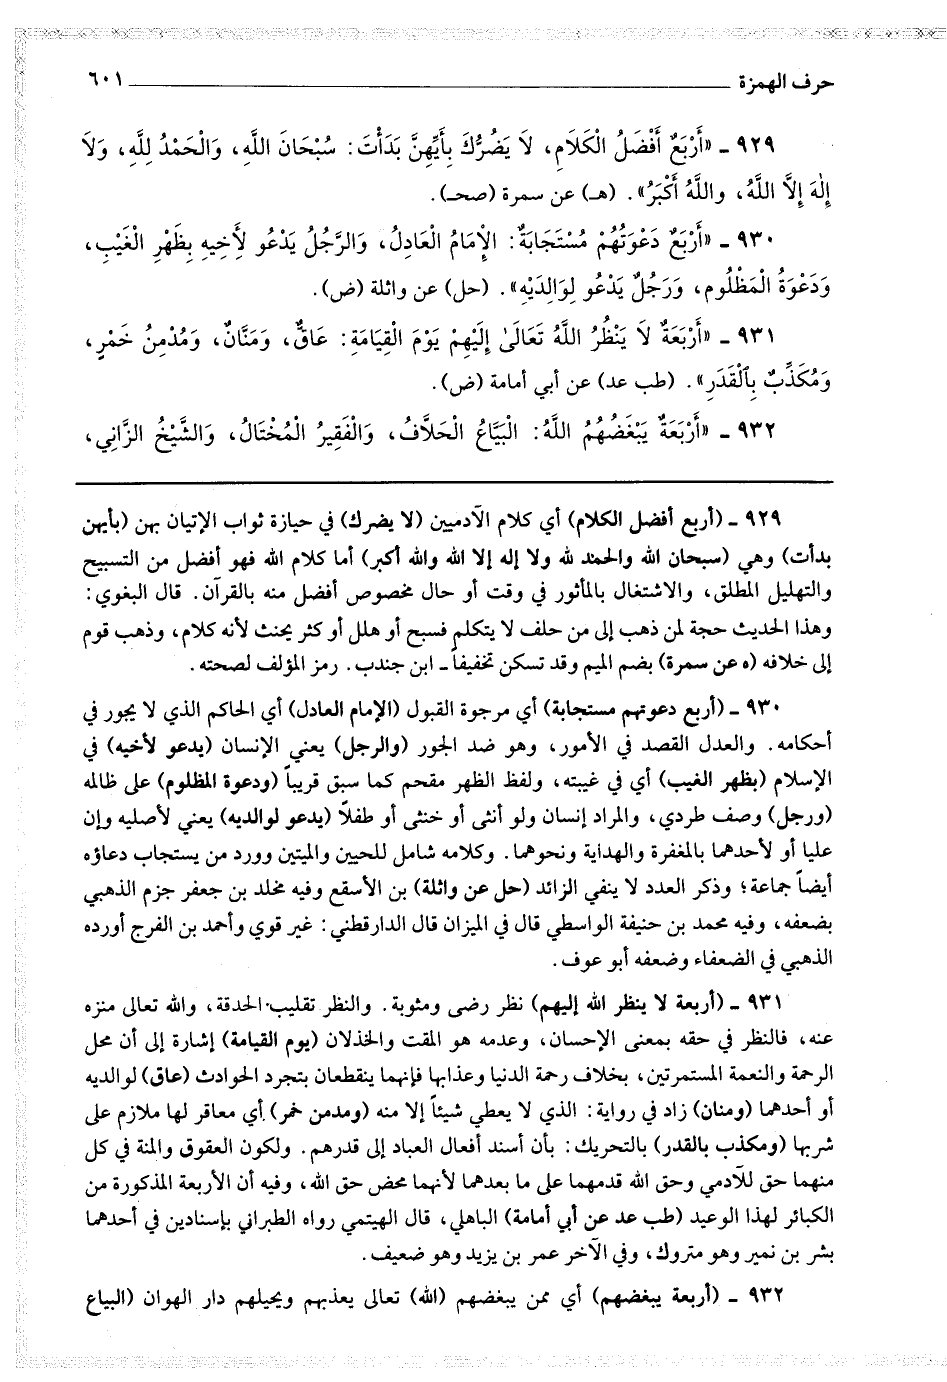 حرف الهمزة ٦٠١
٩٢٩ ـ «أَرْبَعٌ أَفْضَلُ الْكَلَامِ، لَا يَضُرُّكَ بِأَيِّهِنَّ بَدَأْتَ: سُبْحَانَ اللَّهِ، وَالْحَمْدُ لِلَّهِ، وَلَا
إِلٰهَ إِلَّا اللَّهُ، واللَّهُ أَكْبَرُ». (هـ) عن سمرة (صحـ).
٩٣٠ ـ «أَرْبَعٌ دَعْوَتُهُمْ مُسْتَجَابَةٌ: الْإِمَامُ الْعَادِلُ، وَالرَّجُلُ يَدْعُو لِأَخِيهِ بِظَهْرِ الْغَيْبِ،
وَدَعْوَةُ الْمَظْلُومِ، وَرَجُلٌ يَدْعُو لِوَالِدَيْهِ». (حل) عن واثلة (ض).
٩٣١ ـ «أَرْبَعَةٌ لَا يَنْظُرُ اللَّهُ تَعَالَىٰ إِلَيْهِمْ يَوْمَ الْقِيَامَةِ: عَاقٌّ، وَمَنَّانٌ، وَمُدْمِنُ خَمْرٍ،
وَمُكَذِّبٌ بِالْقَدَرِ». (طب عد) عن أبي أمامة (ض).
٩٣٢ ـ «أَرْبَعَةٌ يَبْغَضُهُمُ اللَّهُ: الْبَيَّاعُ الْحَلَّافُ، وَالْفَقِيرُ الْمُخْتَالُ، وَالشَّيْخُ الزَّانِي،
٩٢٩ ـ (أربع أفضل الكلام) أي كلام الآدميين (لا يضرك) في حيازة ثواب الإتيان بهن (بأيهن
بدأت) وهي (سبحان الله والحمد لله ولا إله إلا الله والله أكبر) أما كلام الله فهو أفضل من التسبيح
والتهليل المطلق، والاشتغال بالمأثور في وقت أو حال مخصوص أفضل منه بالقرآن. قال البغوي:
وهذا الحديث حجة لمن ذهب إلى من حلف لا يتكلم فسبح أو هلل أو كثر يحنث لأنه كلام، وذهب قوم
إلى خلافه (ه عن سمرة) بضم الميم وقد تسكن تخفيفاً ـ ابن جندب. رمز المؤلف لصحته.
٩٣٠ ـ (أربع دعوتهم مستجابة) أي مرجوة القبول (الإمام العادل) أي الحاكم الذي لا يجور في
أحكامه. والعدل القصد في الأمور، وهو ضد الجور (والرجل) يعني الإنسان (يدعو لأخيه) في
الإسلام (بظهر الغيب) أي في غيبته، ولفظ الظهر مقحم كما سبق قريباً (ودعوة المظلوم) على ظالمه
(ورجل) وصف طردي، والمراد إنسان ولو أنثى أو خنثى أو طفلاً (يدعو لوالديه) يعني لأصليه وإن
عليا أو لأحدهما بالمغفرة والهداية ونحوهما. وكلامه شامل للحيين والميتين وورد من يستجاب دعاؤه
أيضاً جماعة؛ وذكر العدد لا ينفي الزائد (حل عن واثلة) بن الأسقع وفيه مخلد بن جعفر جزم الذهبي
بضعفه، وفيه محمد بن حنيفة الواسطي قال في الميزان قال الدارقطني: غير قوي وأحمد بن الفرج أورده
الذهبي في الضعفاء وضعفه أبو عوف.
٩٣١ ـ (أربعة لا ينظر الله إليهم) نظر رضى ومثوبة. والنظر تقليب الحدقة، والله تعالى منزه
عنه، فالنظر في حقه بمعنى الإحسان، وعدمه هو المقت والخذلان (يوم القيامة) إشارة إلى أن محل
الرحمة والنعمة المستمرتين، بخلاف رحمة الدنيا وعذابها فإنهما ينقطعان بتجرد الحوادث (عاق) لوالديه
أو أحدهما (ومنان) زاد في رواية: الذي لا يعطي شيئاً إلا منه (ومدمن خمر) أي معاقر لها ملازم على
شربها (ومكذب بالقدر) بالتحريك: بأن أسند أفعال العباد إلى قدرهم. ولكون العقوق والمنة في كل
منهما حق للآدمي وحق الله قدمهما على ما بعدهما لأنهما محض حق الله، وفيه أن الأربعة المذكورة من
الكبائر لهذا الوعيد (طب عد عن أبي أمامة) الباهلي، قال الهيتمي رواه الطبراني بإسنادين في أحدهما
بشر بن نمير وهو متروك، وفي الآخر عمر بن يزيد وهو ضعيف.
٩٣٢ ـ (أربعة يبغضهم) أي ممن يبغضهم (الله) تعالى يعذبهم ويحيلهم دار الهوان (البياع